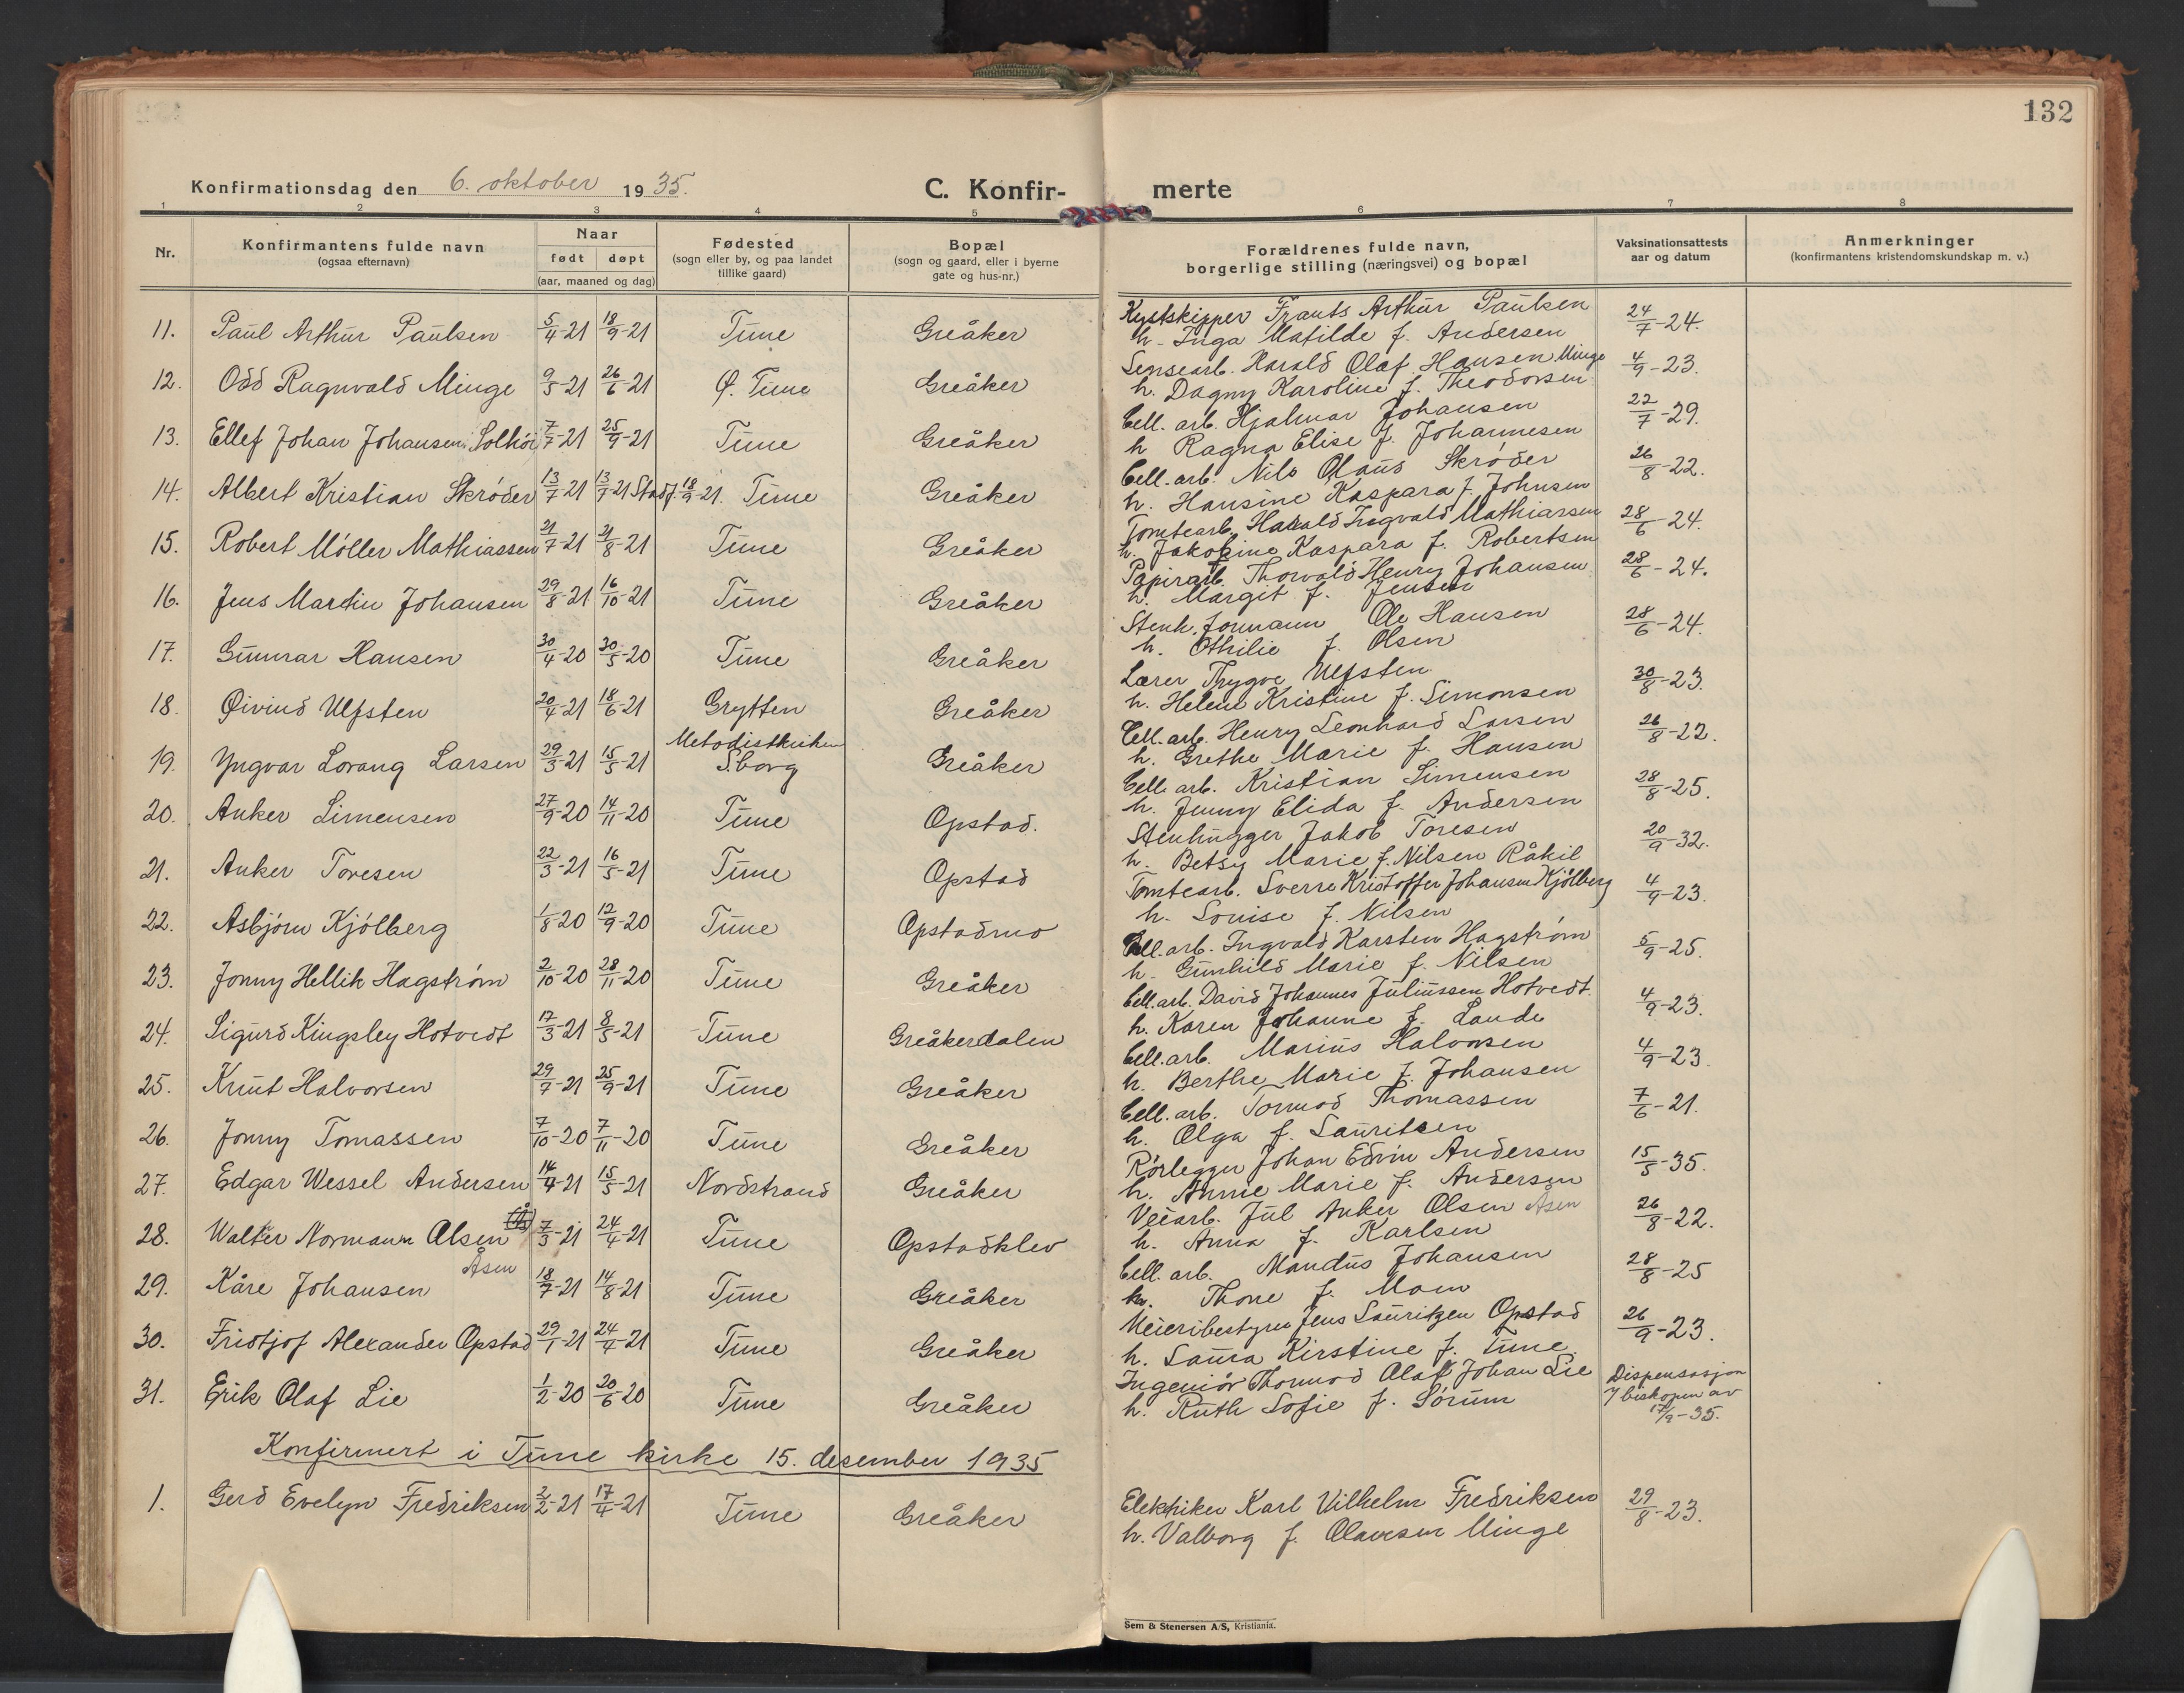 132
Konfirmationsdag den 6. oktober 1935.
C. Konfir- merte
1 2 3 4 5 6 7 8
Nr.
Konfirmantens fulde navn
(ogsaa efternavn)
Naar
født døpt
(aar, maaned og dag)
Fødested
(sogn eller by, og paa landet
tillike gaard)
Bopæl
(sogn og gaard, eller i byerne
gate og hus-nr.)
Forældrenes fulde navn,
borgerlige stilling (næringsvei) og bopæl
Vaksinationsattests
aar og datum
Anmerkninger
(konfirmantens kristendomskundskap m. v.)
11. Paul Arthur Paulsen 5/4-21 18/9-21 Tune Greåker Kystskipper Frants Arthur Paulsen 24/7-24.
h. Inga Matilde f. Andersen
12. Odd Ragnvald Minge 9/5-21 26/6-21 Ø. Tune Greåker Sensearb. Harald Olaf Hansen Minge 4/9-23.
h. Dagny Karoline f. Theodorsen
13. Ellef Johan Johansen Solhöi 7/7-21 25/9-21 Tune Greåker Cell. arb. Hjalmar Johansen 22/7-29.
h Ragna Elise f. Johannesen
14. Albert Kristian Skröder 13/7-21 13/7-21 Stadf. 18/9-21. Tune Greåker Cell. arb. Nils Olaus Skröder 26/8-22.
h. Hansine Kaspara f. Johnsen
15. Robert Möller Mathiassen 21/7-21 21/8-21 Tune Greåker Tomtearb. Harald Tragvald Mathiassen 28/6-24.
h. Jakobine Kaspara f. Robertsen
16. Jens Martin Johansen 29/8-21 16/10-21 Tune Greåker Papirarb. Thorvald Henry Johansen 28/6-24.
h. Margit f. Jensen
17. Gunnar Hansen 30/4-20 30/5-20 Tune Greåker Stenh. formann Ole Hansen 28/6-24.
h. Othilie f. Olsen
18. Øivind Ulfsten 20/4-21 18/6-21 Grytten Greåker Lærer Thygve Ulfsten 30/8-23.
h. Helene Kristine f. Simonsen
19. Yngvar Lorang Larsen 29/3-21 15/5-21 Metodistkirken S.borg Greåker Cell. arb. Henry Leonhard Larsen 26/8-22.
h. Grethe Marie f. Hansen
20. Anker Simensen 27/9-20 14/11-20 Tune Opstad. Cell. arb. Kristian Simensen 28/8-25.
h. Jenny Elida f. Andersen
21. Anker Toresen 22/3-21 16/5-21 Tune Opstad Stenhugger Jakob Toresen 20/9-32.
h. Betsy Marie f. Nilsen Råkil
22. Asbjörn Kjölberg 1/8-20 12/9-20 Tune Opstadmo Tomtearb. Sverre Kristoffer Johansen Kjölberg 4/9-23.
h. Louise f. Nilsen
23. Jonny Hellik Hagström 2/10-20 28/11-20 Tune Greåker Cell. arb. Ingvald Karsten Hagström 5/9-25.
h. Gunhild Marie f. Nilsen
24. Sigurd Kingsley Hotvedt 17/3-21 8/5-21 Tune Greåkerdalen Cell. arb. David Johannes Juliussen Hotvedt. 4/9-23.
h. Karen Johanne f. Lande
25. Knut Halvorsen 29/7-21 25/9-21 Tune Greåker Cell. arb. Marius Halvorsen 4/9-23.
h. Berthe Marie f. Johansen
26. Jonny Tomassen 7/10-20 7/11-20 Tune Greåker Cell. arb. Tormod Thomassen 7/6-21.
h. Olga f. Lauritsen
27. Edgar Wessel Andersen 14/4-21 15/5-21 Nordstrand Greåker Rörlegger Johan Edvin Andersen 15/5-35.
h. Annie Marie f. Andersen
28. Walter Normann Olsen Åsen 7/3-21 24/4-21 Tune Opstadklev Veiarb. Jul Anker Olsen Åsen 26/8-22.
h. Anna f. Karlsen
29. Kåre Johansen 18/7-21 14/8-21 Tune Greåker Cell. arb. Mandus Johansen 28/8-25
h. Thone f. Moen
30. Fridtjof Alexander Opstad 29/1-21 24/4-21 Tune Greåker Meieribestyrer Jens Lauritzen Opstad 26/9-23.
h. Laura Kirstine f. Tune
31. Erik Olaf Lie 1/2-20 20/6-20 Tune Greåker Ingeniör Thormod Olaf Johan Lie Dispensasjon
h. Ruth Sofie f. Sörum f biskopen av
17/9-35.
Konfirmert i Tune kirke 15. desember 1935
1. Gerd Evelyn Fredriksen 2/2-21 17/4-21 Tune Greåker Elektriker Karl Vilhelm Fredriksen 29/8-23.
h. Valborg f. Olavesen Minge
Sem & Stenersen A/S, Kristiania.